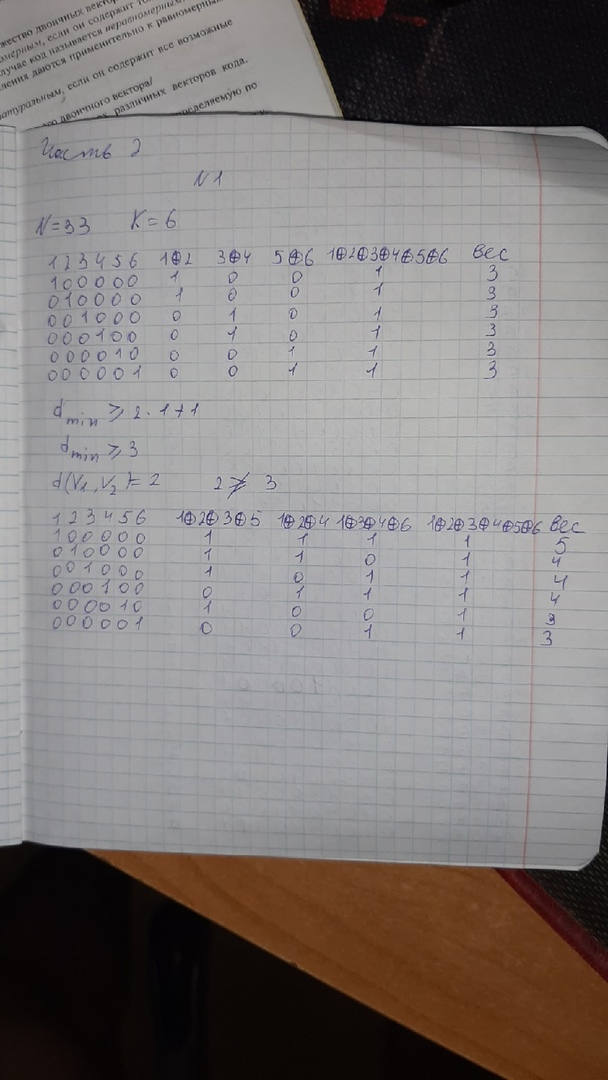 жество двоичных векто
мерным, если он содержит
лучае код называется неравномерным
ления даются применительно к равномерным
натуральным, если он содержит все возможные
двоичного вектора/
различных векторов кода,
определяемую по
Часть 2
N1
N=33 K=6
1 2 3 4 5 6 1⊕2 3⊕4 5⊕6 1⊕2⊕3⊕4⊕5⊕6 Вес
1 0 0 0 0 0 1 0 0 1 3
0 1 0 0 0 0 1 0 0 1 3
0 0 1 0 0 0 0 1 0 1 3
0 0 0 1 0 0 0 1 0 1 3
0 0 0 0 1 0 0 0 1 1 3
0 0 0 0 0 1 0 0 1 1 3
d min ⩾ 2·1+1
d min ⩾ 3
d(V1, V2)= 2 2 ≱ 3
1 2 3 4 5 6 1⊕2⊕3⊕5 1⊕2⊕4 1⊕3⊕4⊕6 1⊕2⊕3⊕4⊕5⊕6 Вес
1 0 0 0 0 0 1 1 1 1 5
0 1 0 0 0 0 1 1 0 1 4
0 0 1 0 0 0 1 0 1 1 4
0 0 0 1 0 0 0 1 1 1 4
0 0 0 0 1 0 1 0 0 1 3
0 0 0 0 0 1 0 0 1 1 3